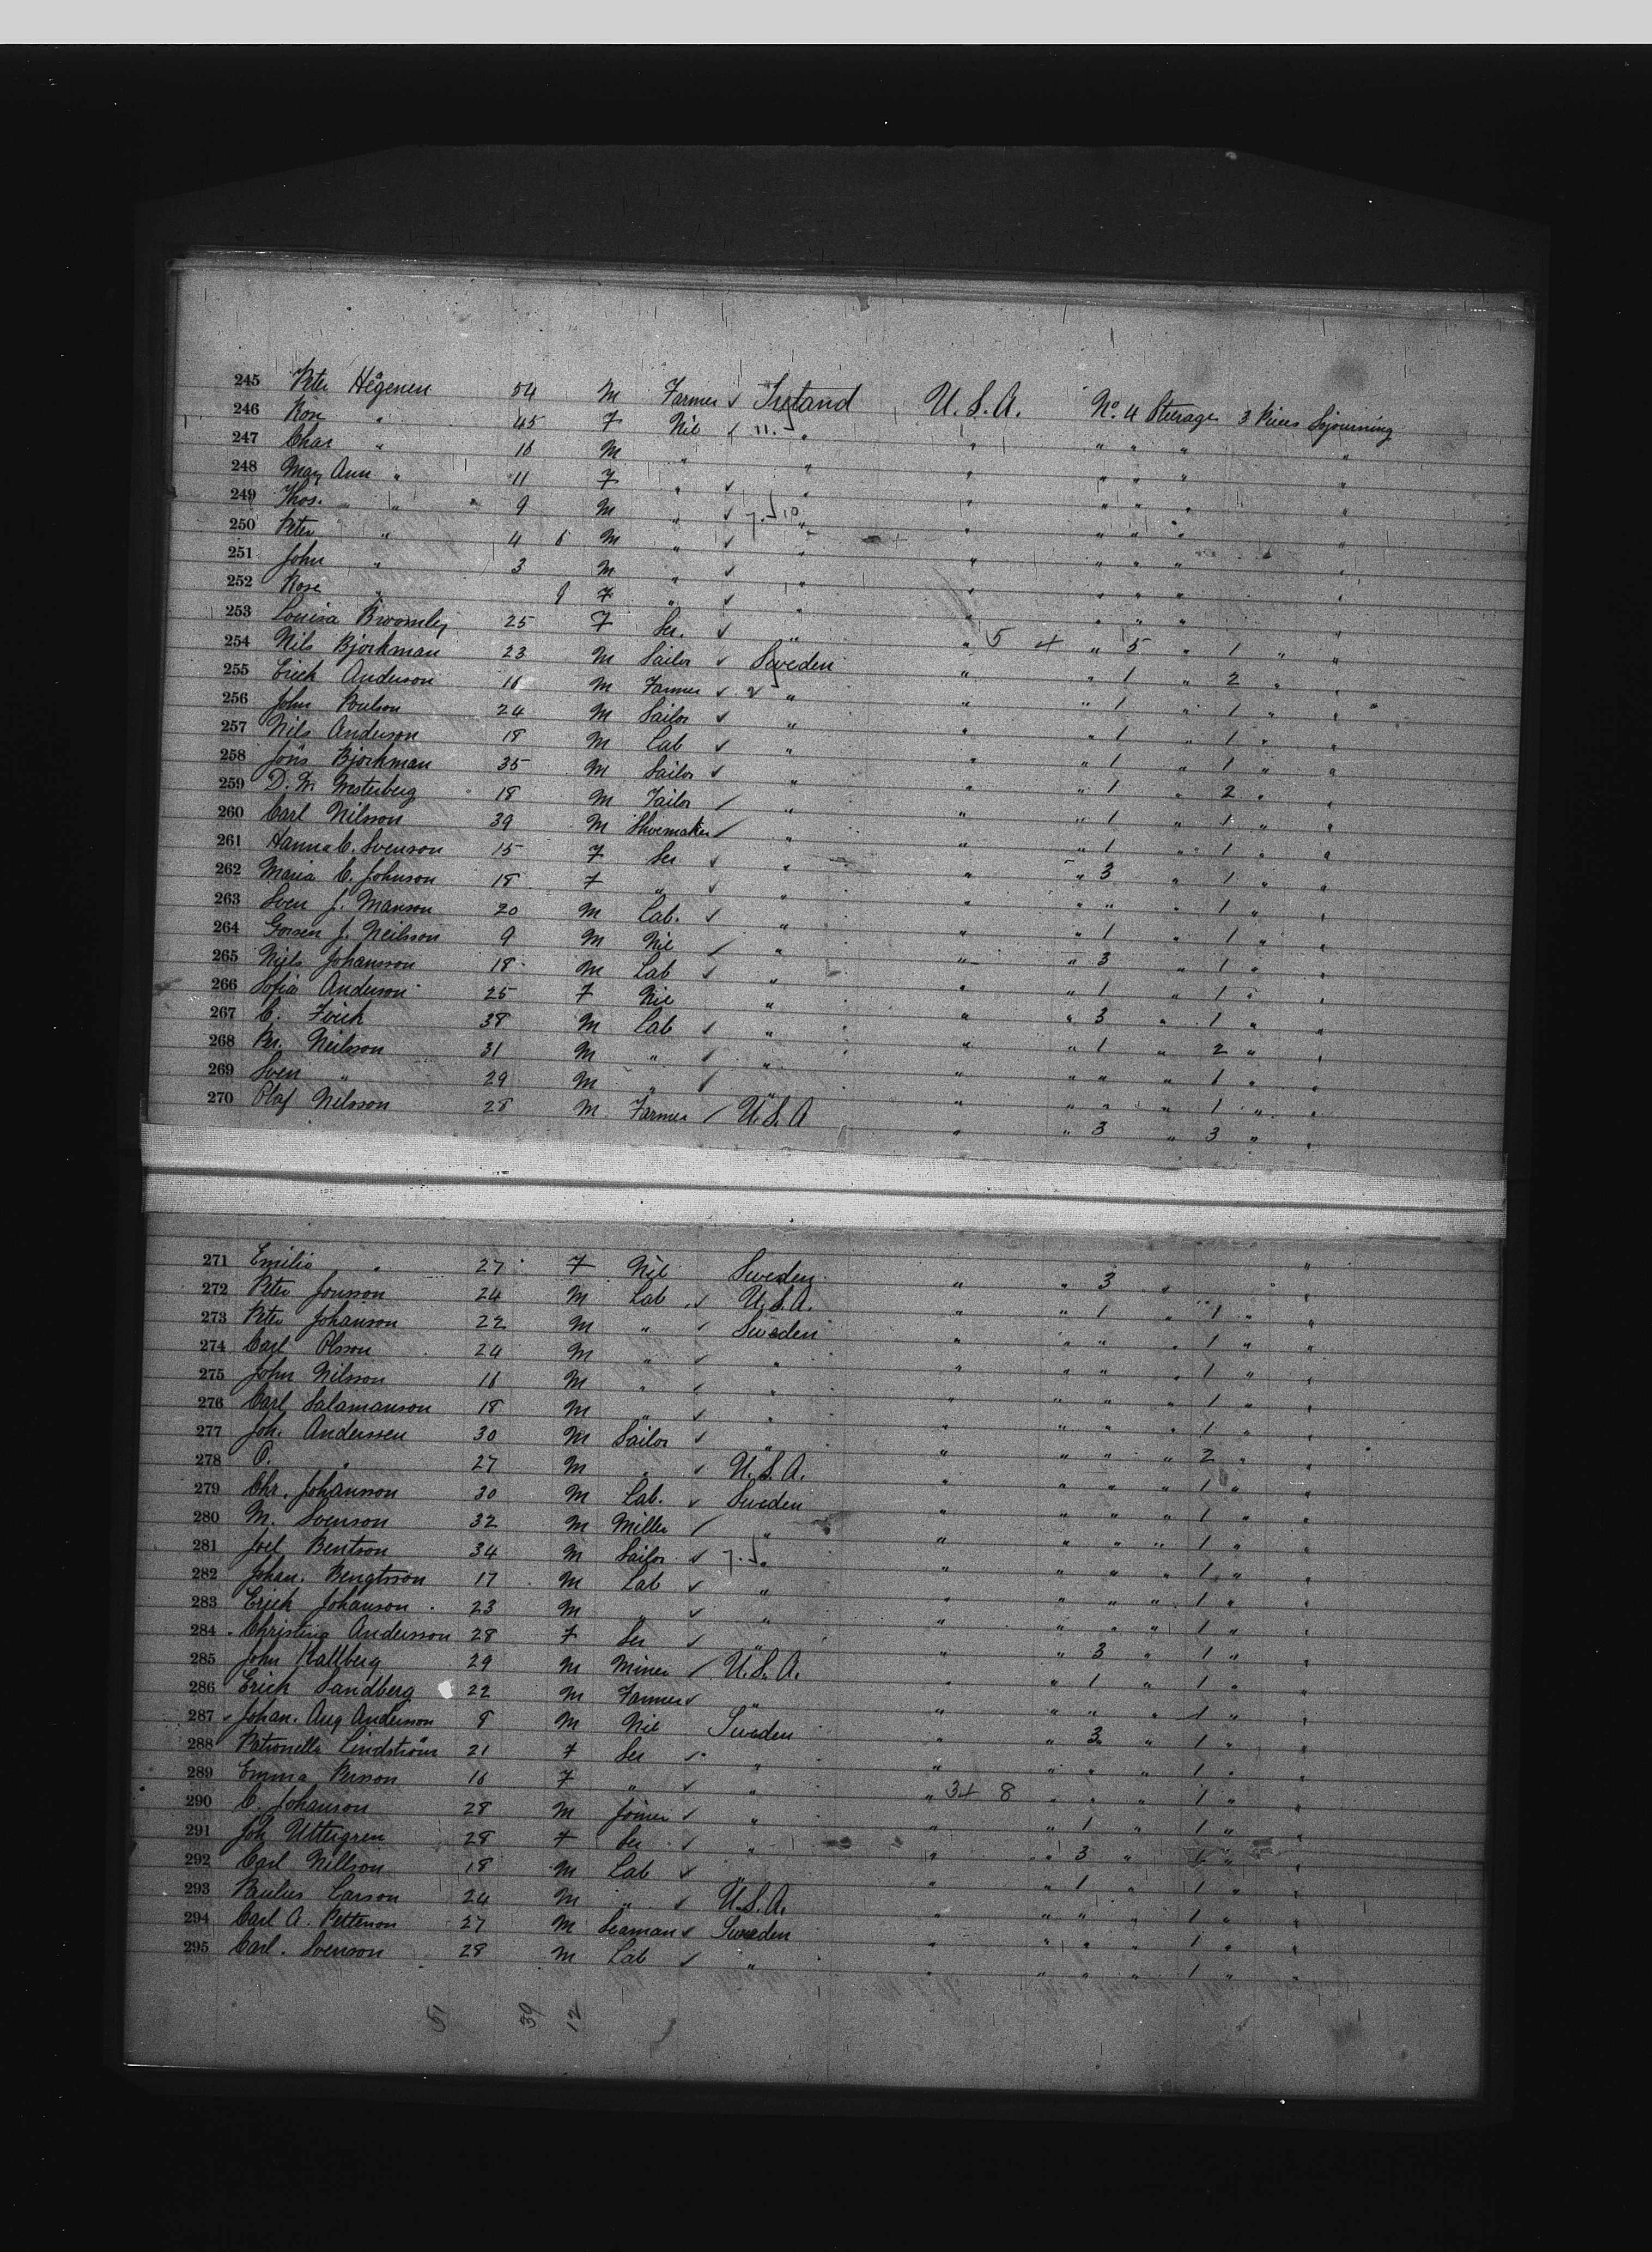 245 Peter Hegenen 54 M Farmer ✓ Ireland U.S.A. No. 4 Steerage 3 Pieces Sojourning
246 Rose " 45 F Nil ✓ 11. " " " " " "
247 Chas " 16 M " " " " " " "
248 Mary Ann " 11 F " ✓ " " " " " "
249 Thos. " 9 M " ✓ " " " " " "
250 Peter " 4 6 M " ✓ " " " " " "
251 John " 3 M " ✓ " " " " " "
252 Rose " 9 F " ✓ " " " " " "
253 Louisa Bromley 25 F Ser. ✓ " " 5 4 " 5 " 1 " "
254 Nils Bjorkman 23 M Sailor ✓ Sweden " " 1 " 2 " "
255 Erick Anderson 16 M Farmer ✓ " " " 1 " 1 " "
256 John Poulson 24 M Sailor ✓ " " " 1 " 1 " "
257 Nils Anderson 18 M Lab ✓ " " " 1 " 1 " "
258 Jöns Bjorkman 35 M Sailor ✓ " " " 1 " 2 " "
259 D. W. Westerberg 18 M Tailor / " " " 1 " 1 " "
260 Carl Nilsson 39 M Shoemaker / " " " 1 " 1 " "
261 Hanna C. Svenson 15 F Ser ✓ " " " 3 " 1 " "
262 Maria C. Johnson 18 F " ✓ " " " " " 1 " "
263 Sven J. Manson 20 M Lab. ✓ " " " 1 " 1 " "
264 J. Neilsson 9 M Nil / " " " 3 " 1 " "
265 Niels Johansson 18 M Lab ✓ " " " 1 " 1 " "
266 Sofia Anderson 25 F Nil " " " 3 " 1 " "
267 C. 38 M Lab ✓ " " " 1 " 2 " "
268 Per. Neilsson 31 M " ✓ " " " " " 1 " "
269 Sven " 29 M " ✓ " " " " " 1 " "
270 Olaf Nilsson 28 M Farmer / U.S.A " " 3 " 3 " "
271 Emilie " 27 F Nil Sweden " " 3 " " "
272 Peter Jonsson 24 M Lab ✓ U.S.A. " " 1 " 1 " "
273 Peter Johanson 22 M " ✓ Sweden " " " " 1 " "
274 Carl Olsson 24 M " ✓ " " " " " 1 " "
275 John Nilsson 16 M " ✓ " " " " " 1 " "
276 Carl Salamanson 18 M " ✓ " " " " " 1 " "
277 Joh. Anderssen 30 M Sailor ✓ " " " " " 2 " "
278 O. " 27 M " ✓ U.S.A. " " " " 1 " "
279 Chr. Johansson 30 M Lab. ✓ Sweden " " " " 1 " "
280 M. Svenson 32 M Miller / " " " " " 1 " "
281 Joel Bentson 34 M Sailor ✓ " " " " " 1 " "
282 Johan. Bengtsson 17 M Lab ✓ " " " " " 1 " "
283 Erick Johanson 23 M " ✓ " " " " " 1 " "
284 Christina Andersson 28 F Ser ✓ " " " 3 " 1 " "
285 John Kallberg 29 M Miner / U.S.A. " " 1 " 1 " "
286 Erick Sandberg 22 M Farmer ✓ " " " " " 1 " "
287 Johan. Aug Anderson 8 M Nil Sweden " " 3 " 1 " "
288 Patronella Lindström 21 F Ser ✓ " " " " " 1 " "
289 Emma Person 16 F " ✓ " " 34 8 " " " 1 " "
290 C. Johanson 28 M Joiner ✓ " " " 1 " 1 " "
291 Joh Uttergren 28 F Ser ✓ " " " 3 " 1 " "
292 Carl Nillson 18 M Lab ✓ " " " 1 " 1 " "
293 Paulus Carson 24 M " ✓ U.S.A. " " " " 1 " "
294 Carl A. Petterson 27 M Seaman ✓ Sweden " " " " 1 " "
295 Carl. Svenson 28 M Lab ✓ " " " " " 1 " "
51 39 12